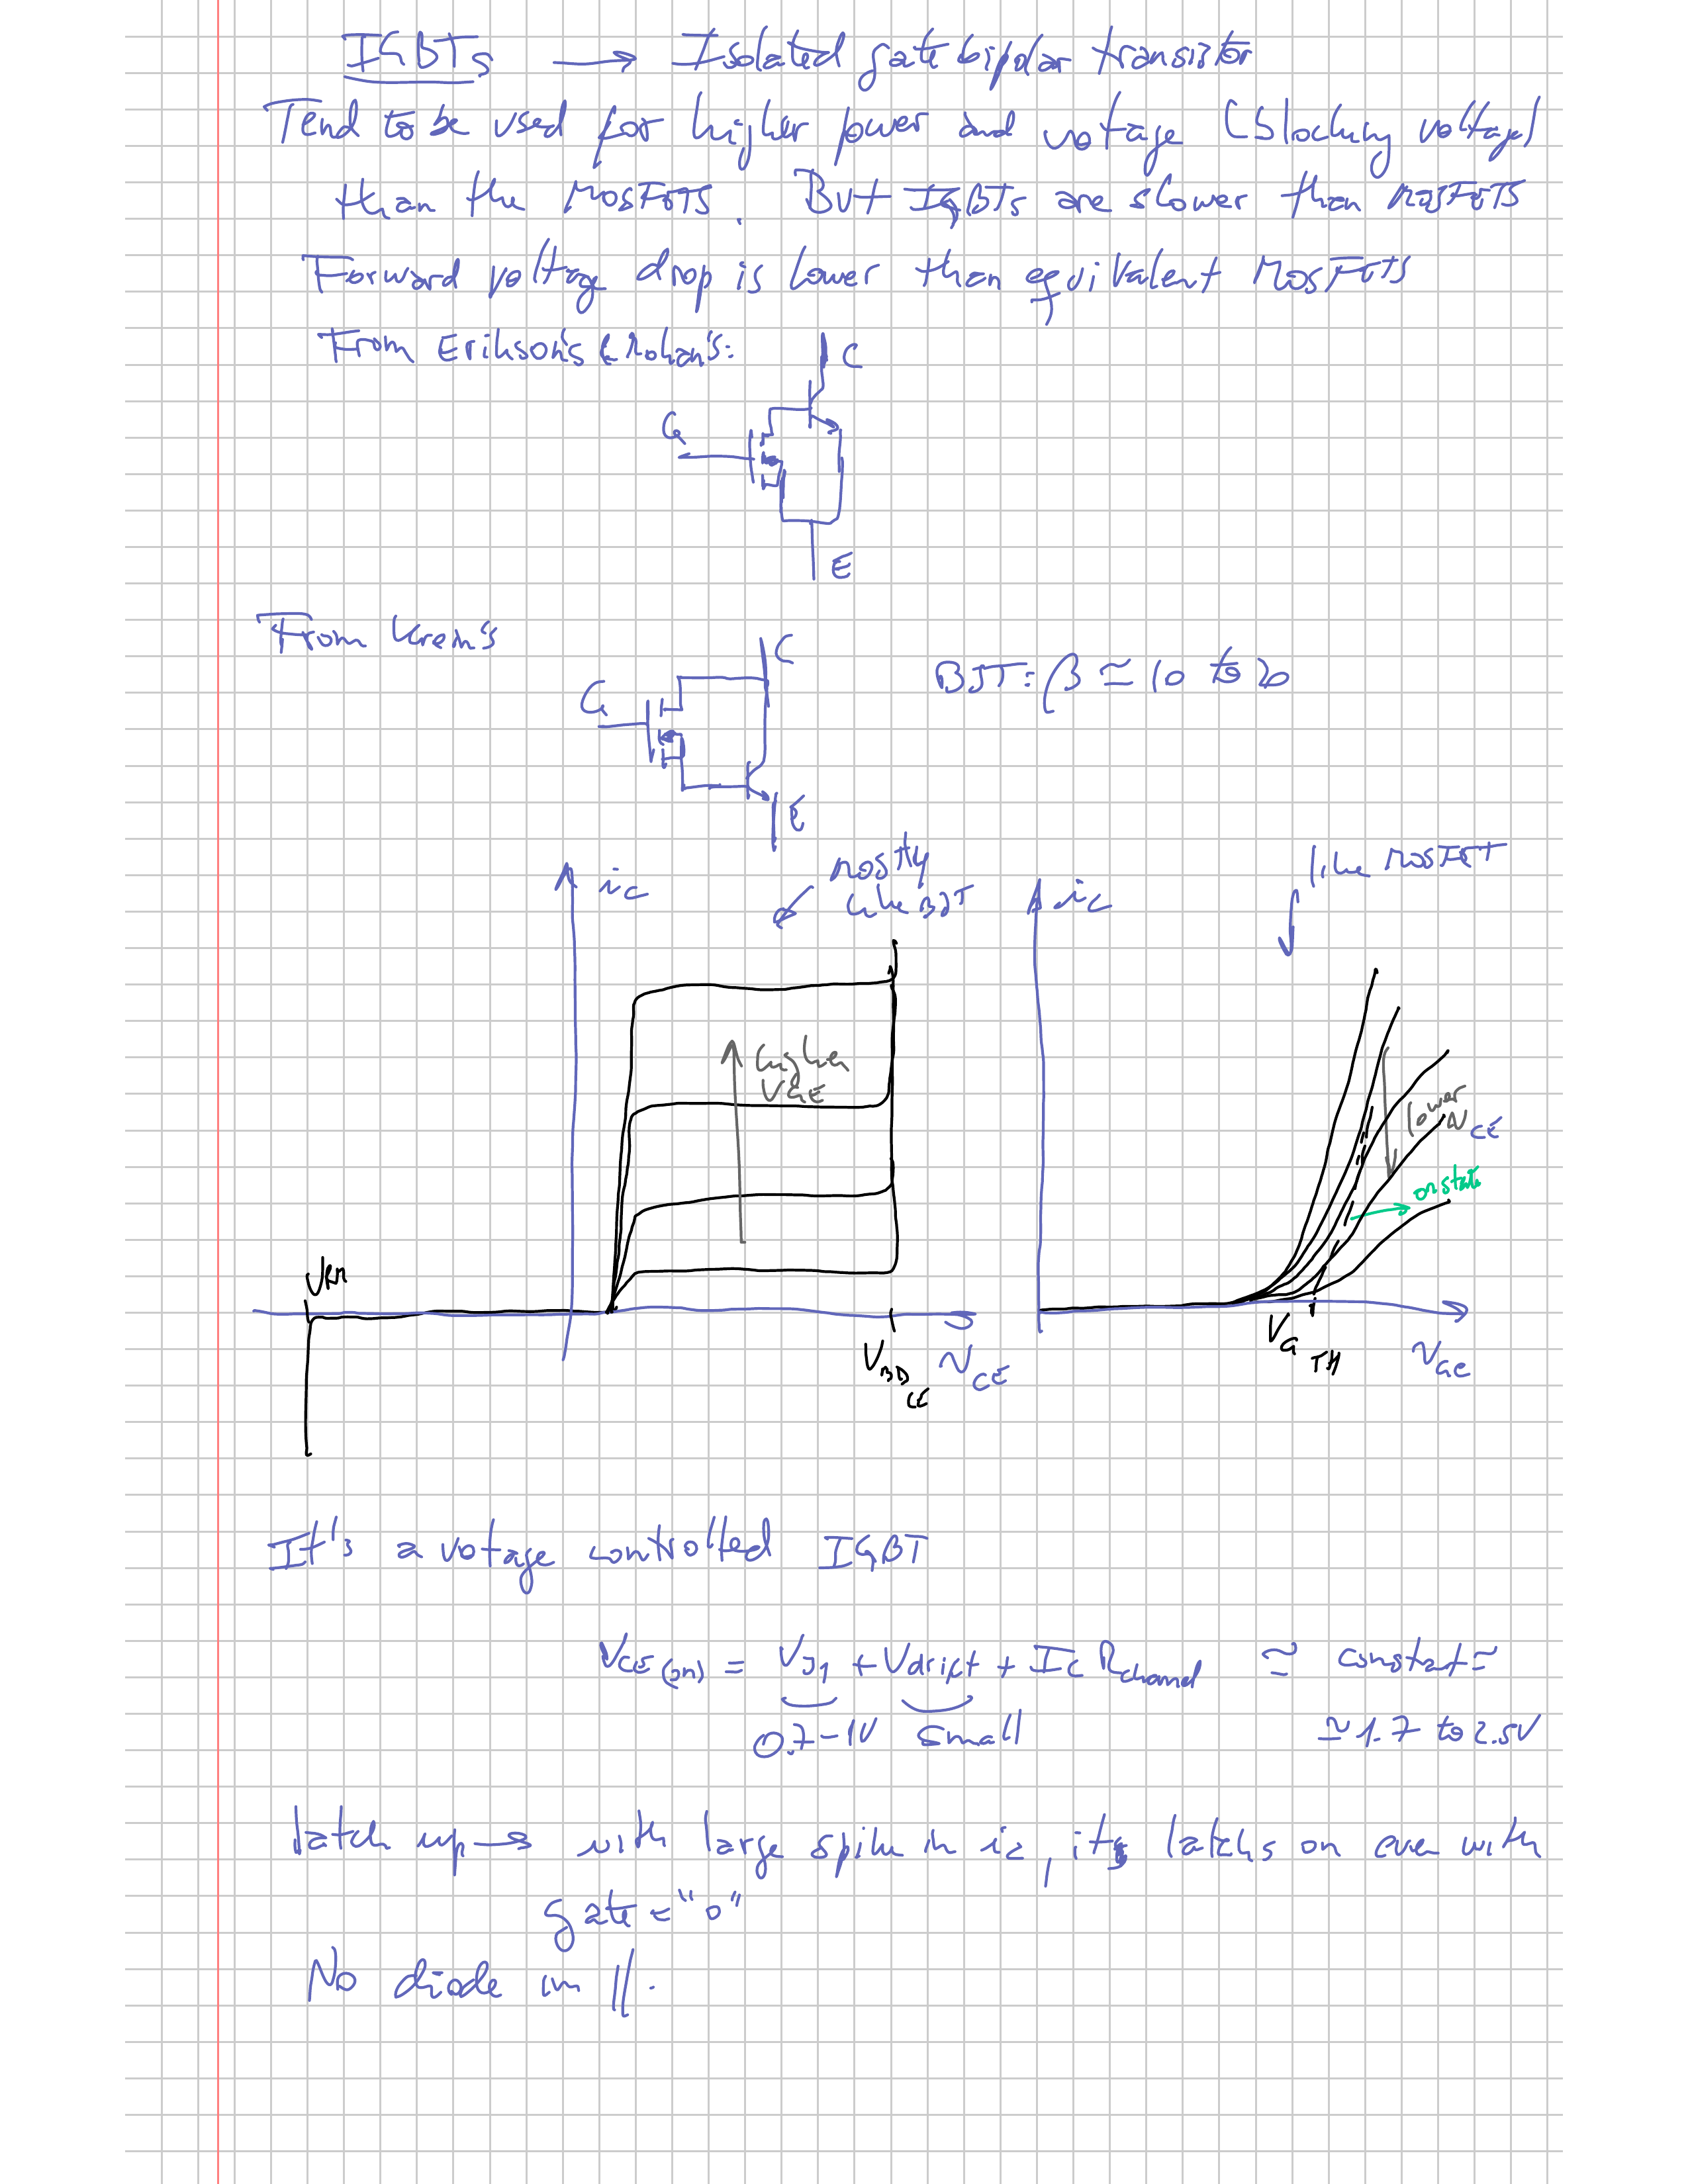 IGBTs → Isolated gate bipolar transistor
Tend to be used for higher power and votage (blocking voltage)
than the MOSFETS. But IGBTs are slower than MOSFETS
Forward voltage drop is lower than equivalent MOSFETS
From Erikson's & Mohan's:
C
G
E
From Krein's
C
G
BJT: β ≃ 10 to 20
E
mostly
like BJT
like MOSFET
ic
ic
higher
VGE
lower vCE
on state
VRM
VBDCE
vCE
VGTH
vGE
It's a votage controlled IGBT
VCE(on) = VJ1 + Vdrift + Ic Rchannel ≃ constant ≃
0.7-1V small ≃ 1.7 to 2.5V
latch up → with large spike in ic, its latchs on even with
gate = "0"
No diode in //.